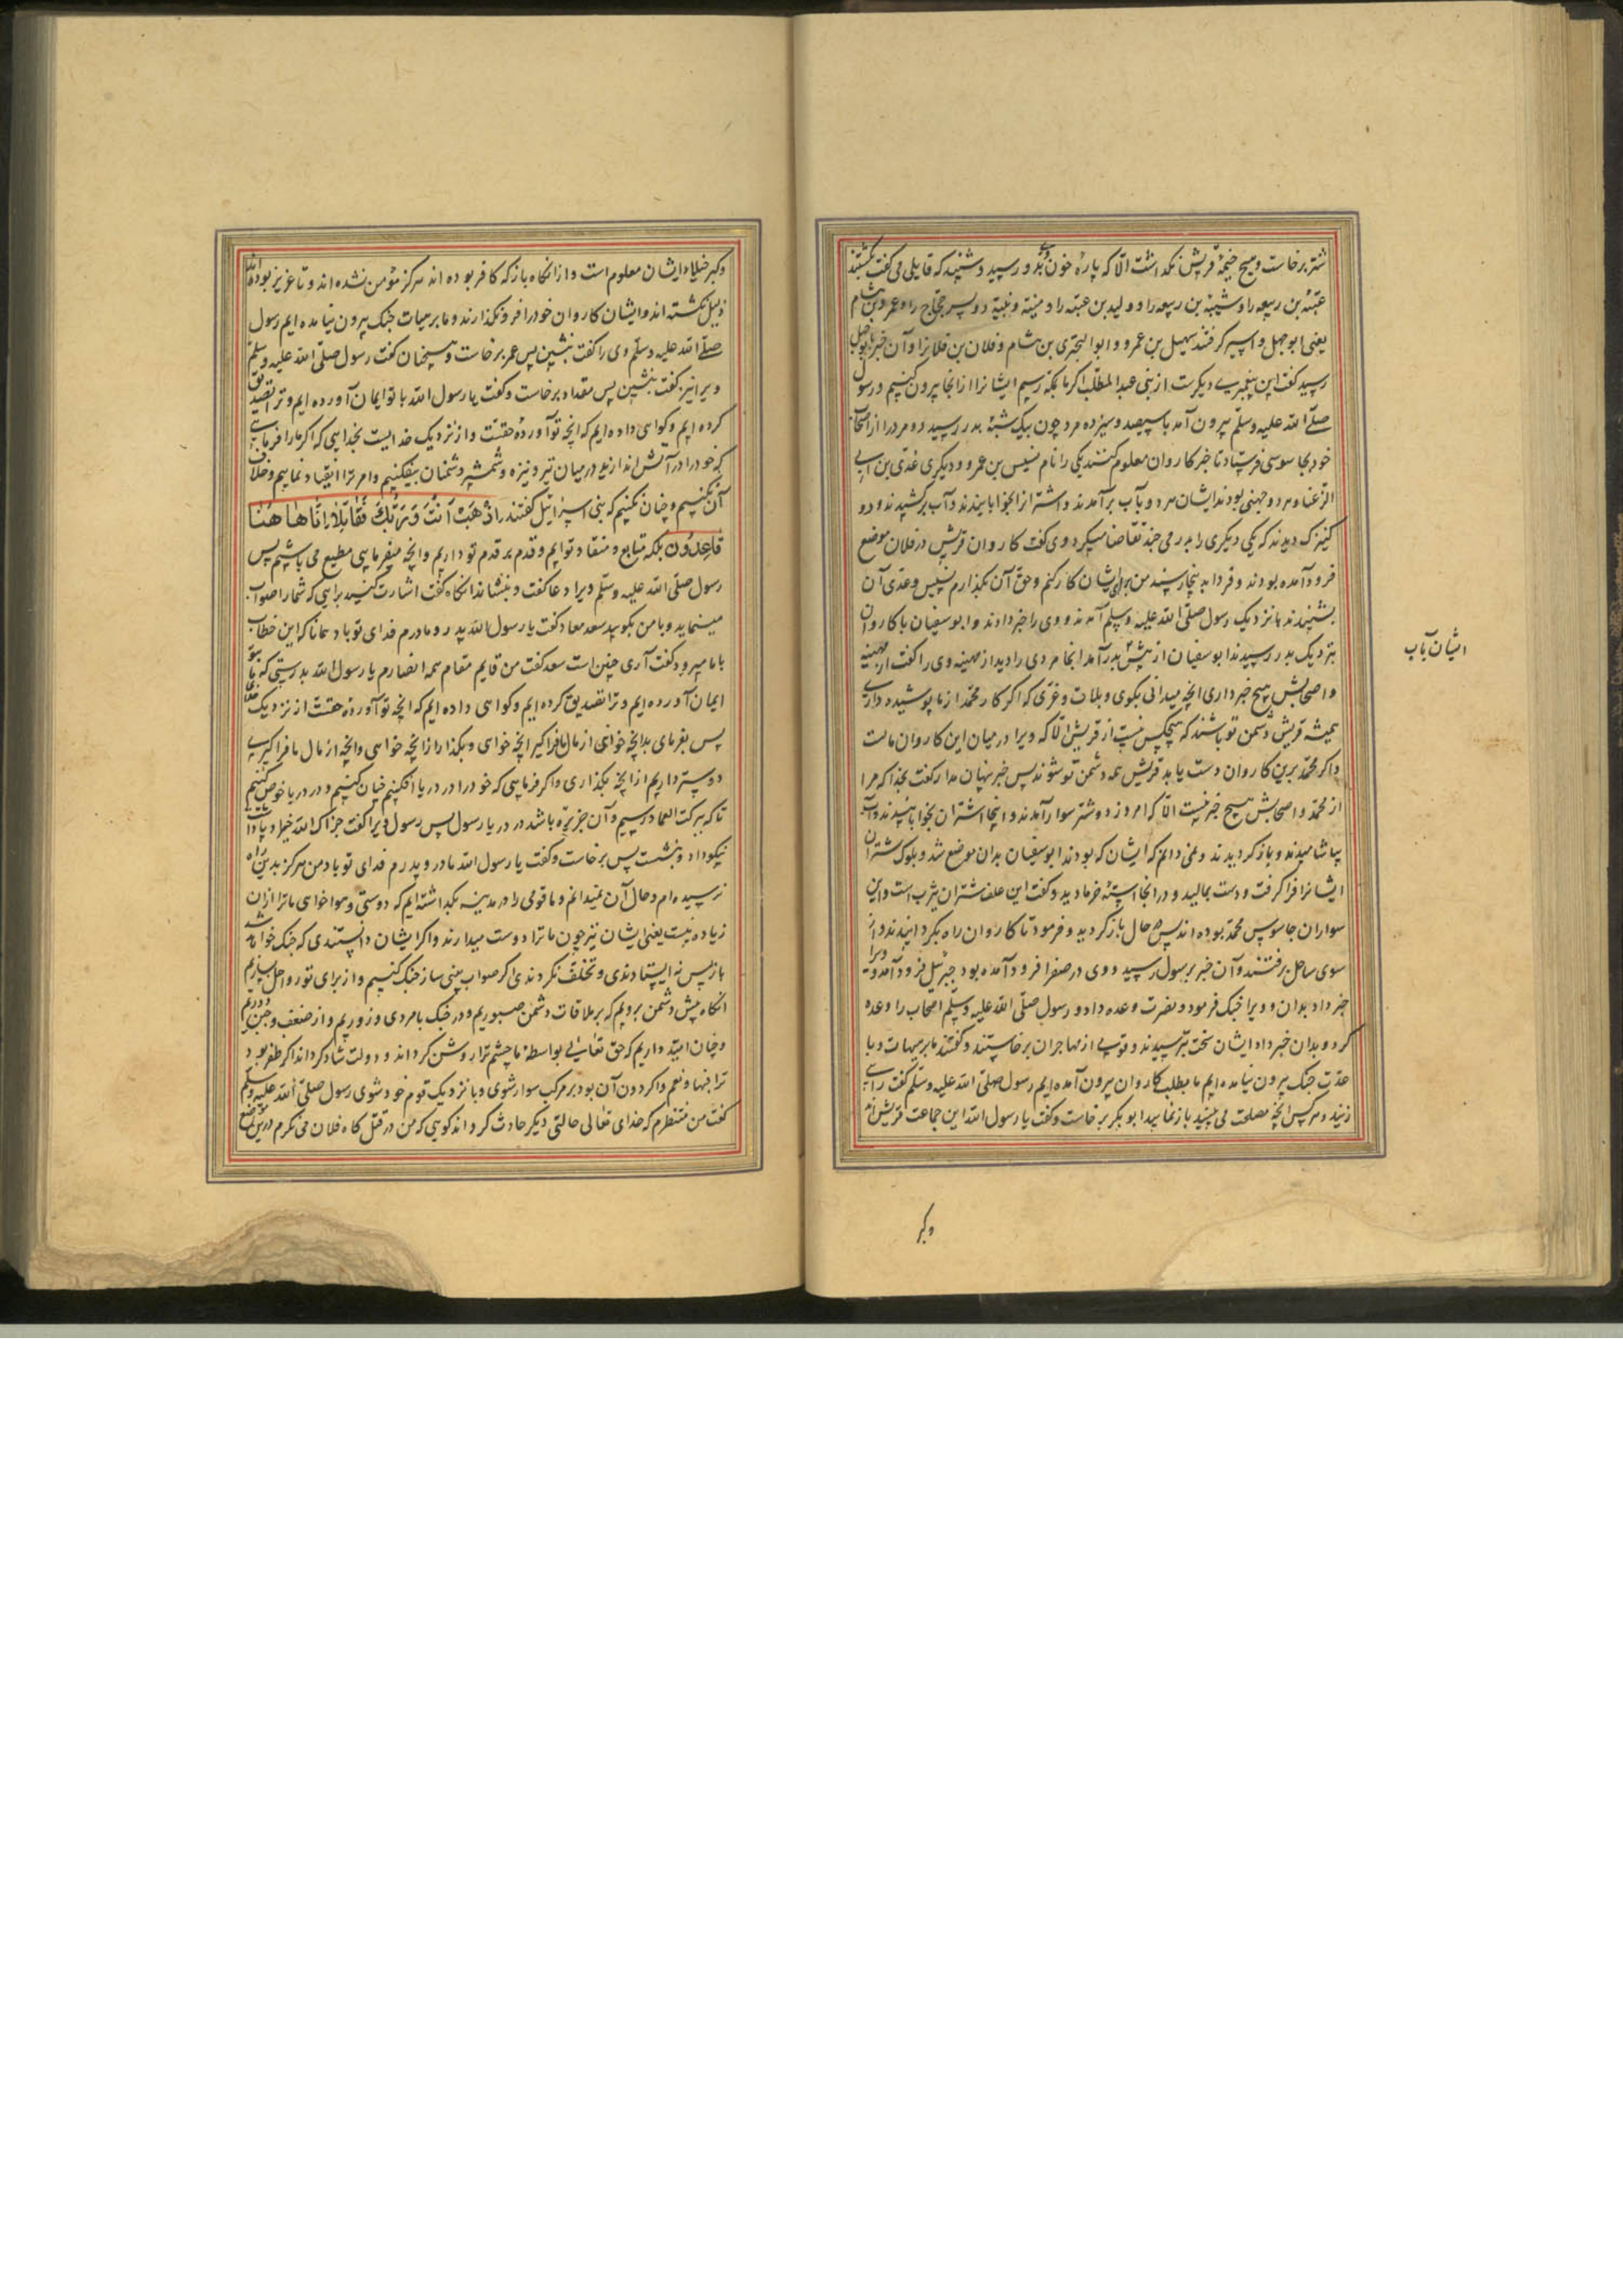 شتر برخاست و هیچ خیمهٔ قریش نگذاشت الّا که پارهٔ خون بدو رسید و شنید که قایلی می گفت بکشتند
عتبة بن ربیعه را و شیبة بن ربیعه را و ولید بن عتبه را و منبّه و نبیه دو پسر حجّاج را و عمرو بن هشام
یعنی ابو جهل و اسیر گرفتند سهیل بن عمرو و ابو البختری بن هشام و فلان بن فلانرا و آن خبر بابو جهل
رسید گفت این پیغمبری دیگرست از بنی عبد المطّلب اگر ما بمکّه رسیم ایشانرا از انجا بیرون کنیم و رسول
صلّی الله علیه وسلّم بیرون آمد با سیصد و سیزده مرد چون بیک شبهٔ بدر رسید دو مرد را از اصحاب
خود بجاسوسی فرستاد تا خبر کاروان معلوم کنند یکی را نام بسیس بن عمرو و دیگری عدّی بن ابی
الزغبا و هر دو جهنی بودند ایشان هر دو بآب برآمدند و اشترانرا بخوابانیدند و آب برکشیدند و دو
کنیزک دیدند که یکی دیگری را بدرمی چند تقاضا میکرد وی گفت کاروان قریش در فلان موضع
فرود آمده بودند و فردا به پنجا رسند من برای ایشان کار کنم و حقّ آن بگذارم بسیس و عدّی آن
بشنیدند باز نزدیک رسول صلّی الله علیه وسلّم آمدند و وی را خبر دادند و ابو سفیان با کاروان
بنزدیک بدر رسیدند ابو سفیان از پیش بدر آمد انجا مردی را دید از جهینه وی را گفت از جهینه
و اصحابش هیچ خبر داری انچه میدانی بگوی و بلات و عزّی که اگر کار محمّد از ما پوشیده داری
همیشه قریش دشمن تو باشند که هیچکس نیست از قریش الّا که ویرا در میان این کاروان مالست
و اگر محمّد برین کاروان دست یابد قریش همه دشمن تو شوند پس خبر پنهان مدار گفت بخدا که مرا
از محمّد و اصحابش هیچ خبر نیست الّا که امروز دو شتر سوار آمدند و اینجا اشتران بخوابانیدند و آب
بیاشامیدند و باز گردیدند و نمی دانم که ایشان که بودند ابو سفیان بدان موضع شد و پلوک شتران
ایشانرا فرا گرفت و دست بمالید و در انجا استهٔ خرما دید و گفت این علف شتران یثرب است و این
سواران جاسوس محمّد بوده اند پس حال باز گردید و فرمود تا کاروان راه بگردانیدند و از
سوی ساحل برفتند و آن خبر برسول رسید و وی در صفرا فرود آمده بود جبرئیل فرود آمد و ویرا
خبر داد بدان و ویرا جنگ فرمود و نصرت وعده داد و رسول صلّی الله علیه وسلّم اصحاب را وعده
کرد و بدان خبر داد ایشان سخت بترسیدند و قومی از مهاجران برخاستند و گفتند ما بر هیات و با
عدّت جنگ بیرون نیامده ایم ما بطلب کاروان بیرون آمده ایم رسول صلّی الله علیه وسلّم گفت رای
زنید و هر کس انچه مصلحت می بینید باز نمایید ابو بکر برخاست و گفت یا رسول الله این جماعت قریش اند
ایشان بآب
وکبر
وکبر خیلاء ایشان معلوم است و از انگاه باز که کافر بوده اند هرگز مؤمن نشده اند و تا عزیز بوده اند
ذلیل نگشته اند و ایشان کاروان خود را فرو نگذارند و ما بر هیات جنگ بیرون نیامده ایم رسول
صلّی الله علیه وسلّم وی را گفت بنشین پس عمر برخاست و سخنان گفت رسول صلّی الله علیه وسلّم
ویرا نیز گفت بنشین پس مقداد برخاست و گفت یا رسول الله با تو ایمان آورده ایم و ترا تصدیق
کرده ایم و گواهی داده ایم که انچه تو آوردهٔ حقّست و از نزدیک خدایست بخدایی که اگر ما را فرمایی
که خود را در آتش اندازید و در میان تیر و نیزه و شمشیر دشمنان بیفکنیم و امر ترا انقیاد نماییم و خلاف
آن نکنیم و چنان نکنیم که بنی اسرائیل گفتند اذْهَبْ اَنْتَ وَ رَبُّكَ فَقَاتِلَا اِنَّا هَاهُنَا
قاعِدُونَ بلکه متابع و منقاد توایم و قدم بر قدم تو داریم و انچه میفرمایی مطیع می باشیم پس
رسول صلّی الله علیه وسلّم ویرا دعا گفت و بنشاند انگاه گفت اشارت کنید برایی که شما را صواب
مینماید و با من بگویید سعد معاد گفت یا رسول الله پدر و مادرم فدای تو باد همانا که این خطاب
با ما میرود گفت آری چنین است سعد گفت من قایم مقام همه انصارم یا رسول الله بدرستی که ما بتو
ایمان آورده ایم و ترا تصدیق کرده ایم و گواهی داده ایم که انچه تو آوردهٔ حقّست از نزدیک خدا
پس بفرمای بدانچه خواهی از مال ما فرا گیر انچه خواهی و بگذار از انچه خواهی و انچه از مال ما فرا گیری
دوستر داریم از انچه بگذاری و اگر فرمایی که خود را در دریا افکنیم چنان کنیم و در دریا خوض کنیم
تا که ببرکت العماد رسیم و آن جزیره باشد در دریا رسول پس رسول ویرا گفت جزاک الله خیرا و پاداش
نیکو داد و بنشست پس برخاست و گفت یا رسول الله مادر و پدرم فدای تو باد من هرگز بدین راه
نرسیده ام و حال آن نمیدانم و ما قومی را در مدینه بگذاشته ایم که دوستی و هوا خواهی ما ترا از ان
زیاده نیست یعنی ایشان نیز چون ما ترا دوست میدارند و اگر ایشان دانستندی که جنگ خواهد شد
باز پس نه ایستادندی و تخلّف نکردندی اگر صواب بینی ساز جنگ کنیم و از برای تو رواحل بسازیم
انگاه پیش دشمن برویم که بر ملاقات دشمن صبوریم و در جنگ با مردی و زوریم و از ضعف و جبن دوریم
و چنان امید داریم که حق تعالی بواسطهٔ ما چشم ترا روشن گرداند و دولت شاد گرداند اگر ظفر بود
ترا فبها و نعم و اگر دون آن بود بر مرکب سوار شوی و با نزدیک قوم خود شوی رسول صلّی الله علیه وسلّم
گفت من منتظرم که خدای تعالی حالتی دیگر حادث گرداند گویی که من در قتل گاه فلان می نگرم درین موضع